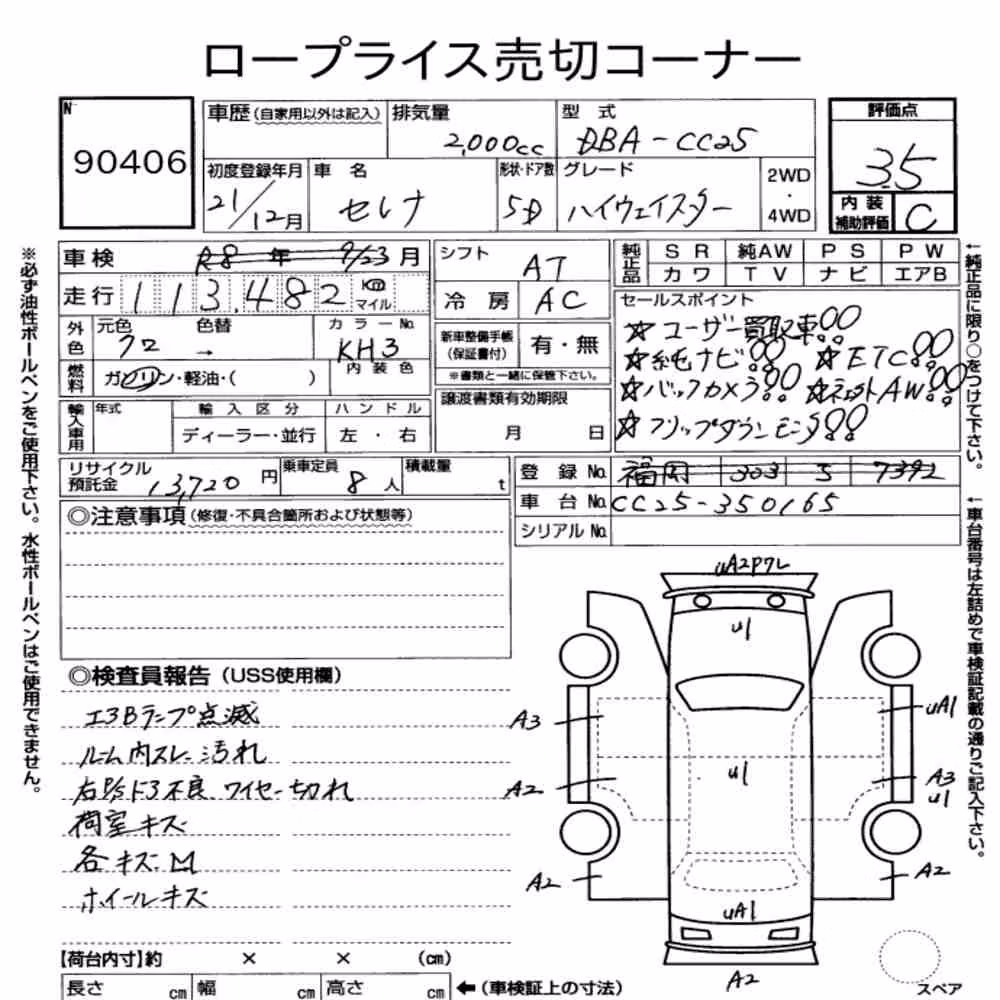 ロープライス売切コーナー
N
90406
車歴 (自家用以外は記入)
排気量
2,000cc
型 式
DBA-CC25
評価点
3.5
初度登録年月
21/12月
車 名
セレナ
形状・ドア数
5D
グレード
ハイウェイスター
2WD
・
4WD
内 装
補助評価
C
車検
R8 年 9/23月
走行
113,482
Km
マイル
シフト
AT
冷 房
AC
純正品
SR 純AW PS PW
カワ TV ナビ エアB
外色
元色
クロ
色替
→
カラーNo.
KH3
内装色
燃料
ガソリン・軽油・( )
新車整備手帳
(保証書付)
有・無
※書類と一緒に保管下さい。
セールスポイント
☆ユーザー買取車!!
☆純ナビ!! ☆ETC!!
☆バックカメラ!! AW!!
☆フリップダウンモニタ!!
輸入車用
年式
輸入区分
ディーラー・並行
ハンドル
左・右
譲渡書類有効期限
月 日
リサイクル
預託金
13,720円
乗車定員
8人
積載量
t
登録No.
福岡 303 す 7392
車台No.
CC25-350165
シリアルNo.
◎注意事項 (修復・不具合箇所および状態等)
◎検査員報告 (USS使用欄)
エアBランプ点滅
ルーム内スレ、汚れ
不良 ワイヤー切れ
荷室キズ
各キズ凹
ホイールキズ
uA2Pワレ
u1
A3
uA1
A2
u1
A3
u1
A2
A2
uA1
A2
【荷台内寸】約 × × (cm)
長さ cm 幅 cm 高さ cm ←(車検証上の寸法)
スペア
※必ず油性ボールペンをご使用下さい。水性ボールペンはご使用できません。
←純正品に限り○をつけて下さい。
←車台番号は左詰めで車検証記載の通りご記入下さい。